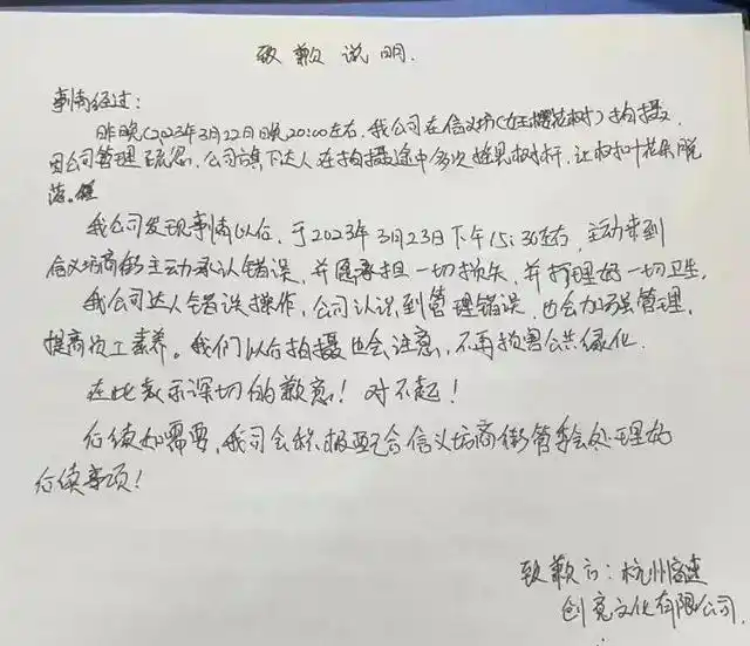 致歉说明.
事情经过:
昨晚(2023年3月22日晚20:00左右.我公司在信义坊(女王樱花树)拍摄.
因公司管理疏忽.公司旗下达人在拍摄途中多次摇晃树杆.让树叶花朵脱
落.
我公司发现事情以后.于2023年3月23日下午15:30左右,主动来到
信义坊商街主动承认错误,并愿承担一切损失,并打理好一切卫生.
我公司达人错误操作,公司认识到管理错误.也会加强管理.
提高员工素养。我们以后拍摄也会注意,不再损害公共绿化.
在此表示深切的歉意!对不起!
后续如需要,我司会积极配合信义坊商街管委会处理好
后续事项!
致歉方:杭州
创意文化有限公司.